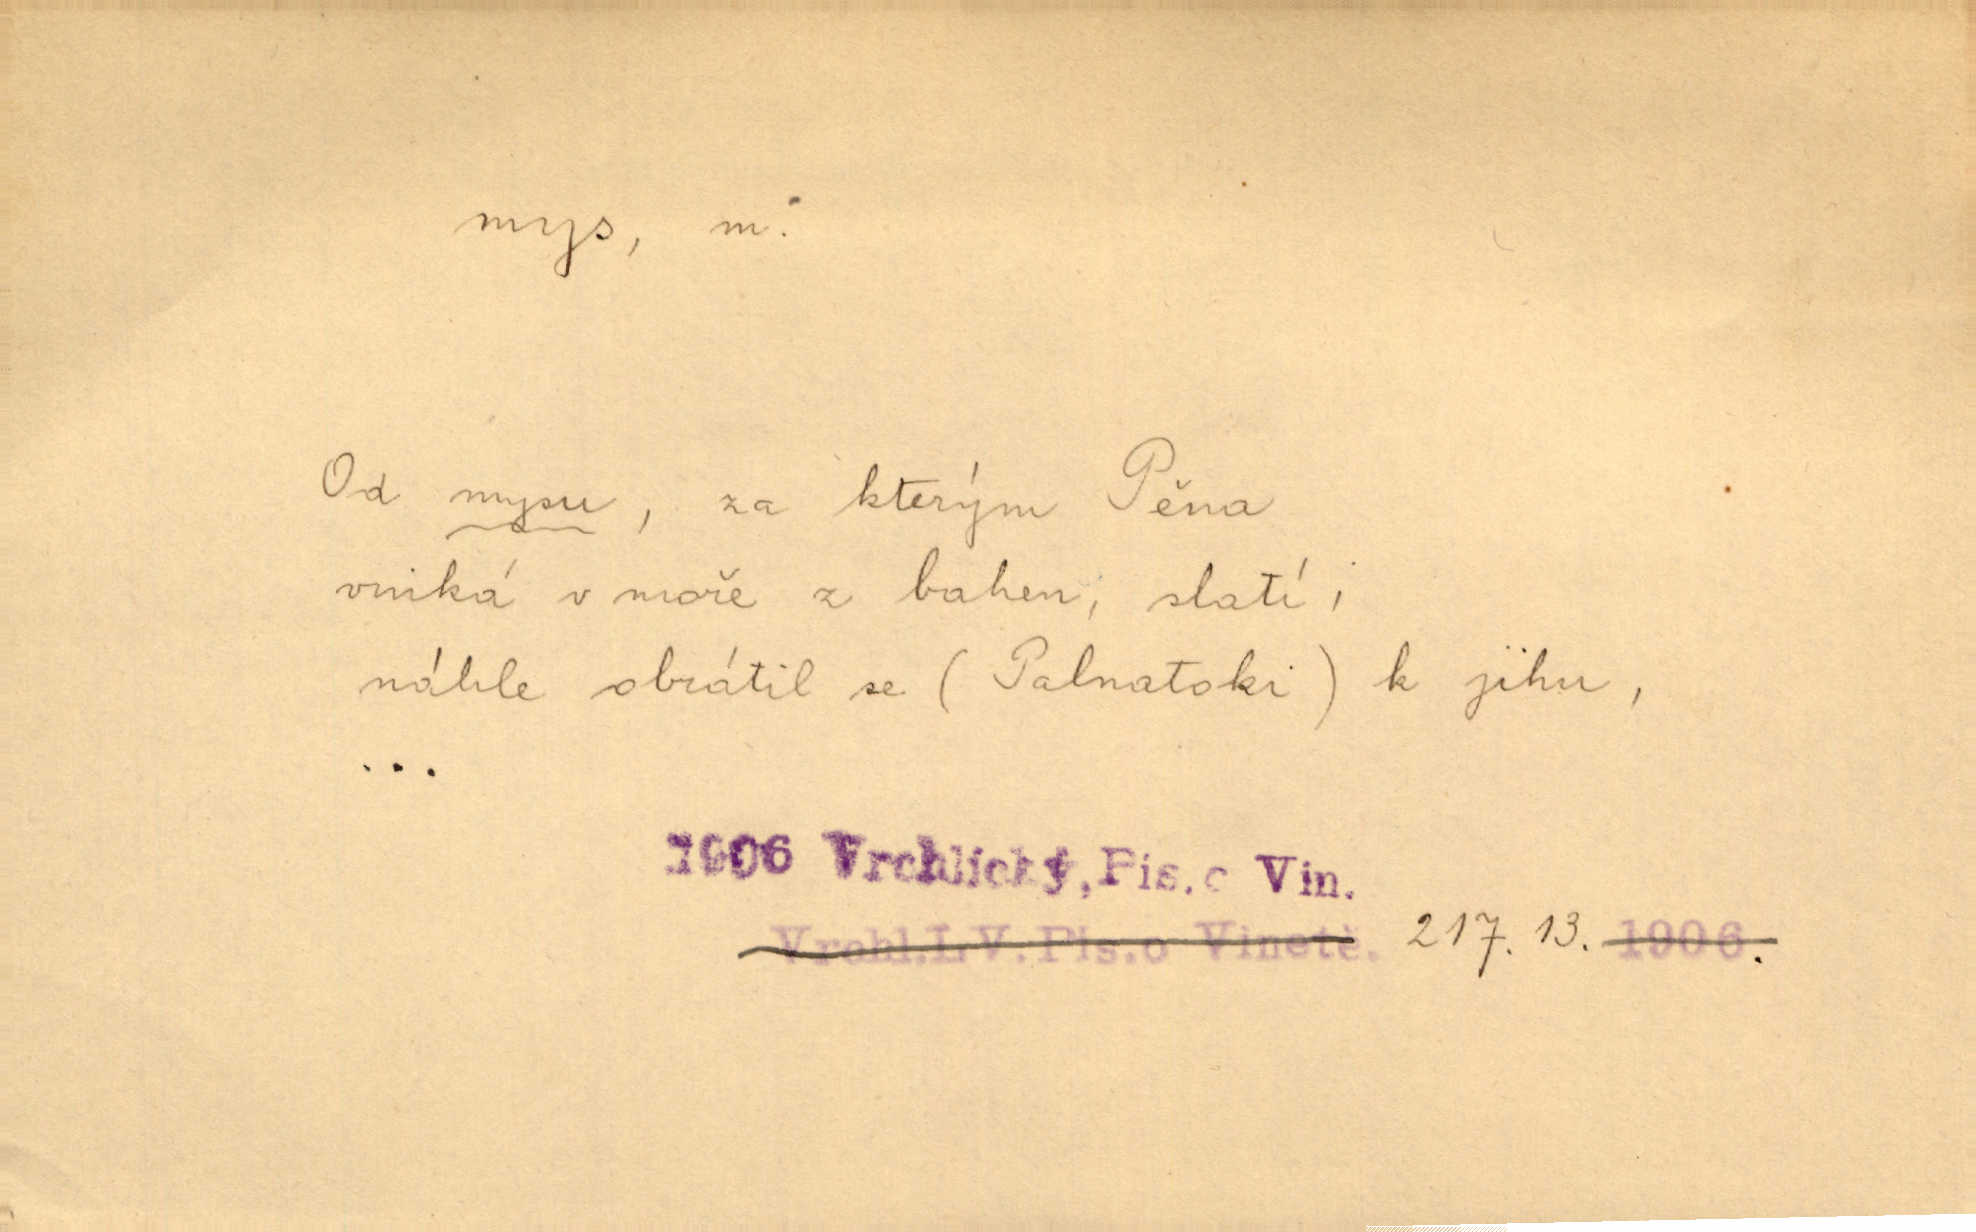 mys, m.
Od mysu, za kterým Pěna
vniká v moře z bahen, slatí,
náhle obrátil se (Palnatoki) k jihu,
...
1906 Vrchlický, Pís. o Vin.
Vrchl. L V. Pís. o Vinetě. 217. 13. 1906.